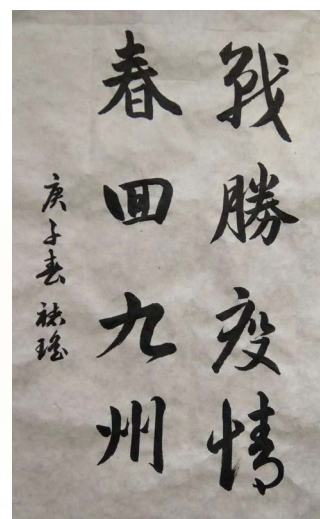 戰勝疫情
春回九州
庚子春 祛瑤